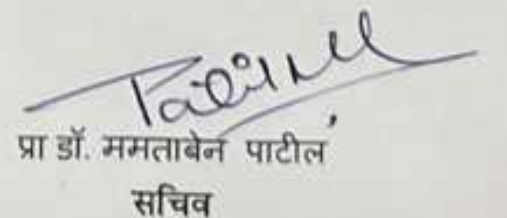 प्रा डॉ. ममताबेन पाटील
सचिव